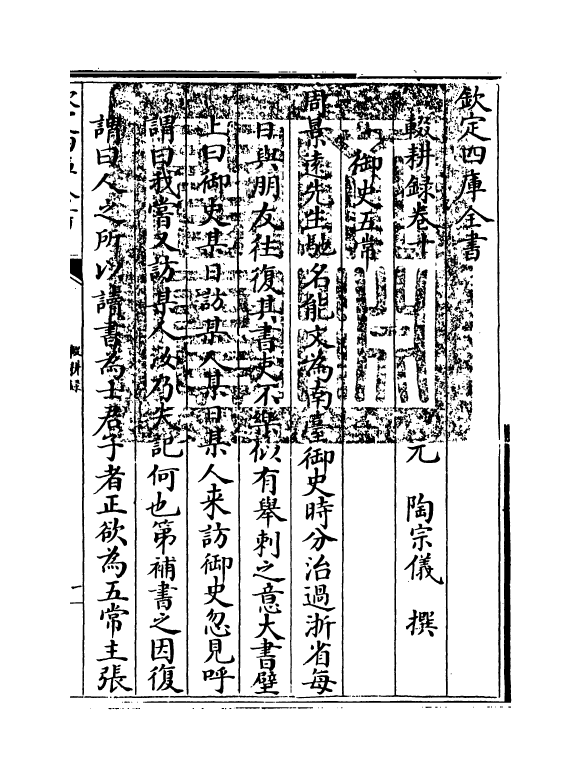 欽定四庫全書
輟耕録卷十
元 陶宗儀 撰
御史五常
周景遠先生馳名能文為南臺御史時分治過浙省每
日與朋友往復其書吏不樂似有舉刺之意大書壁
上曰御史某日訪某人某日某人来訪御史忽見呼
謂曰我嘗又訪某人汝乃失記何也第補書之因復
謂曰人之所以讀書為士君子者正欲為五常主張
輟耕録
一